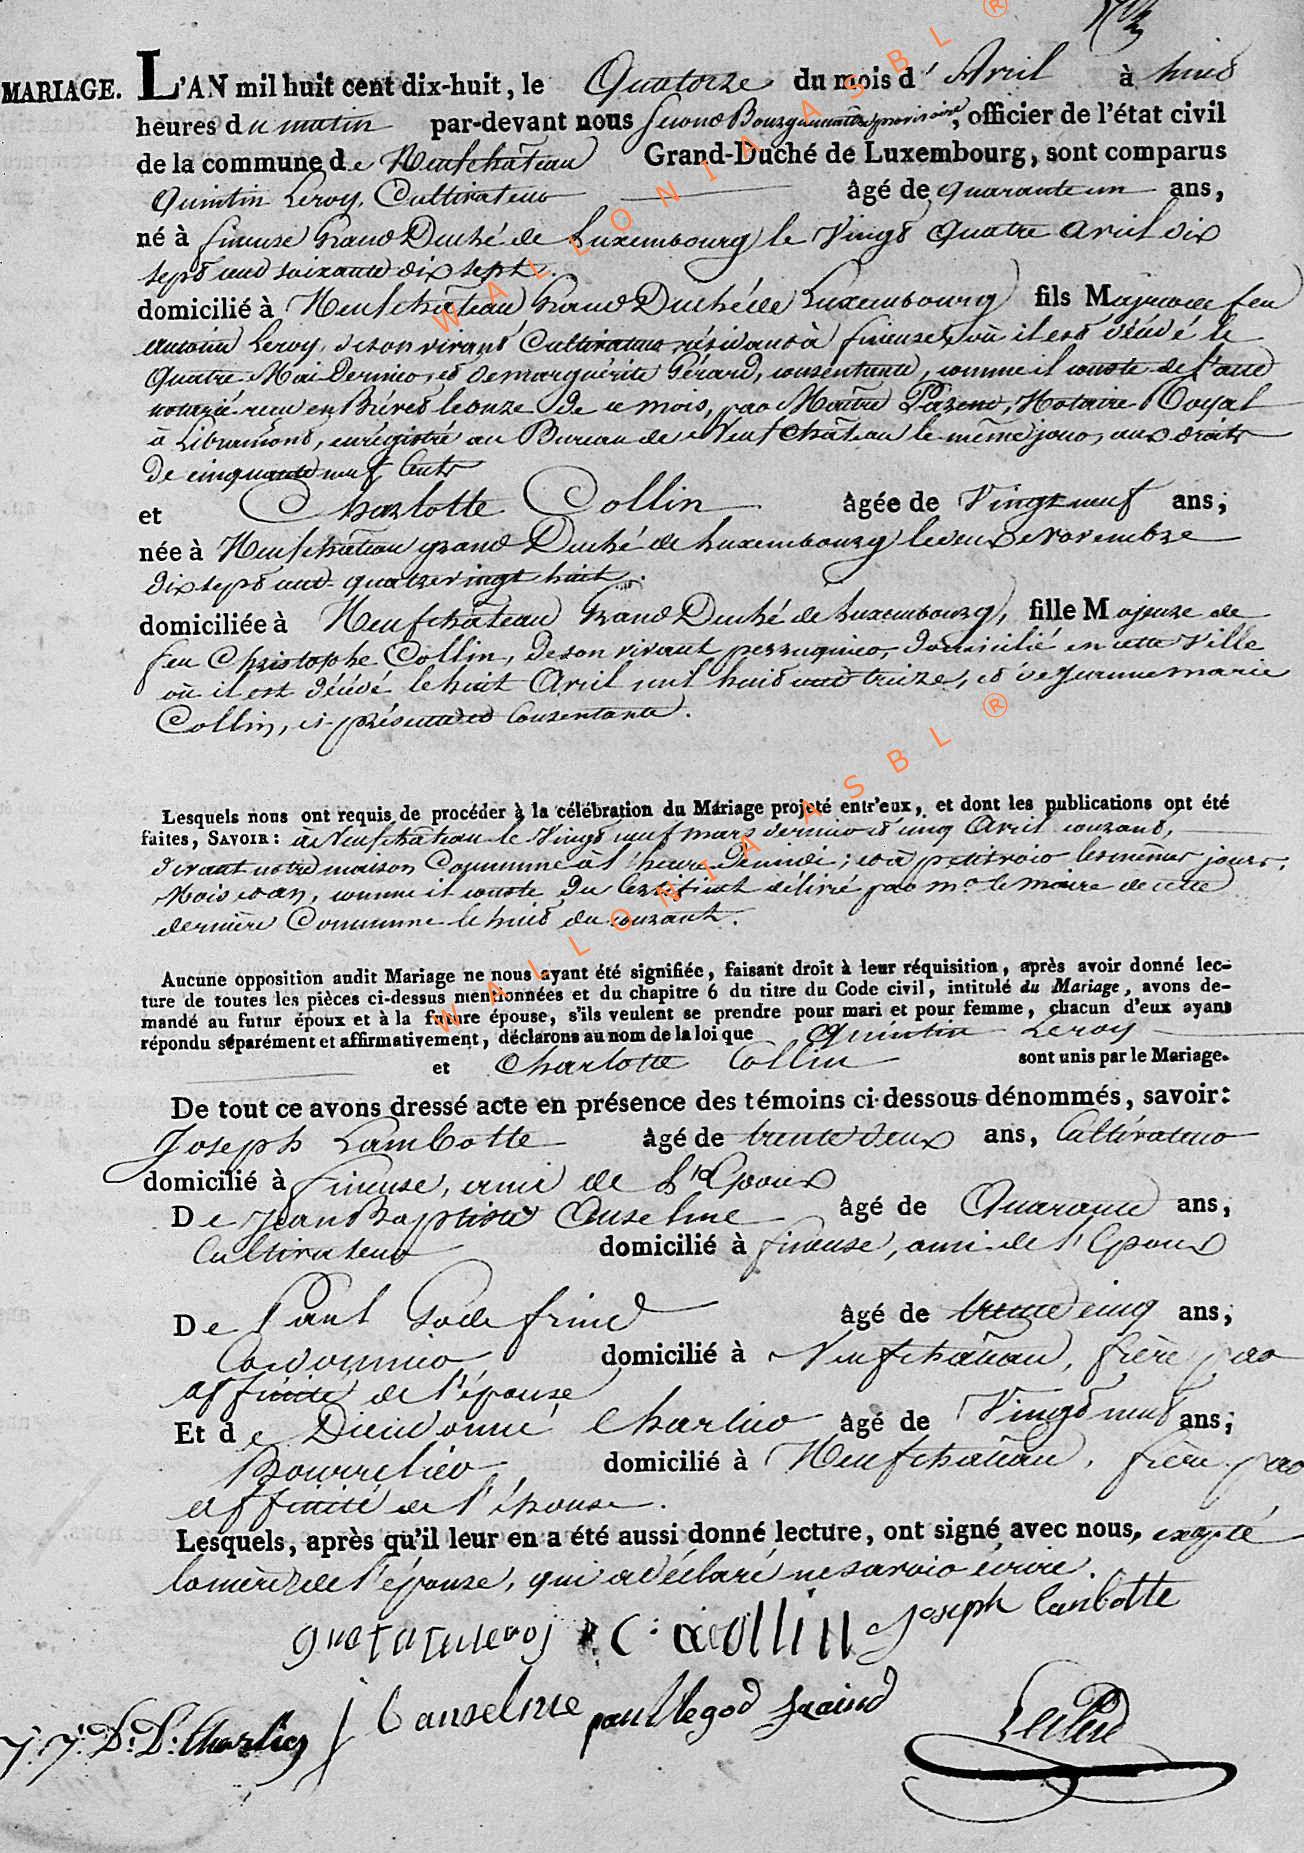 MARIAGE. L'AN mil huit cent dix-huit, le Quatorze du mois d'Avril à huit
heures du matin par-devant nous Second Bourguemaître provisoire, officier de l'état civil
de la commune de Neufchâteau Grand-Duché de Luxembourg, sont comparus
Quintin Leroy, Cultivateur âgé de quarante un ans,
né à fineuse Grand Duché de Luxembourg le Vingt Quatre avril dix
sept cent soixante dix sept.
domicilié à Neufchâteau Grand Duché de Luxembourg fils Majeur de feu
Antoine Leroy, de son vivant Cultivateur résidant à fineuse, où il est décédé le
Quatre Mai dernier, et de marguérite Gérard, consentante, comme il conste de l'acte
notarié reçu en Brévet le onze de ce mois, par Maître Notaire Royal
à Libramont, enrégistré au Bureau de Neufchâteau le même jour, aux droits
de cinquante neuf Cents
et Charlotte Collin âgée de Vingt neuf ans;
née à Neufchâteau grand Duché de Luxembourg le deux Novembre
dix sept cent quatre vingt huit.
domiciliée à Neufchâteau Grand Duché de Luxembourg, fille Majeure de
feu Christophe Collin, de son vivant perruquier, domicilié en cette Ville
où il est décédé le huit Avril mil huit cent treize, et de Jeanne marie
Collin, ci présente et Consentante.
Lesquels nous ont requis de procéder à la célébration du Mariage projeté entr'eux, et dont les publications ont été
faites, SAVOIR: à Neufchâteau le Vingt neuf mars dernier et cinq Avril courant,
devant notre maison Commune à l'heure de midi; et à petitvoir les mêmes jours,
Mois et an, comme il conste du Certificat délivré par Mr. le Maire de cette
dernière Commune le huit du courant.
Aucune opposition audit Mariage ne nous ayant été signifiée, faisant droit à leur réquisition, après avoir donné lec-
ture de toutes les pièces ci-dessus mentionnées et du chapitre 6 du titre du Code civil, intitulé du Mariage, avons de-
mandé au futur époux et à la future épouse, s'ils veulent se prendre pour mari et pour femme, chacun d'eux ayant
répondu séparément et affirmativement, déclarons au nom de la loi que Quintin Leroy
et Charlotte Collin sont unis par le Mariage.
De tout ce avons dressé acte en présence des témoins ci-dessous dénommés, savoir:
Joseph Lambotte âgé de trente deux ans, Cultivateur
domicilié à fineuse, ami de l'Epoux
De Jean Baptiste Anselme âgé de Quarante ans,
Cultivateur domicilié à fineuse, ami de l'Epoux
De Paul Godefrind âgé de trente cinq ans,
Cordonnier domicilié à Neufchâteau, frère par
affinité de l'épouse
Et de Dieudonné Charlier âgé de Vingt neuf ans;
Bourrelier domicilié à Neufchâteau, frère par
affinité de l'épouse.
Lesquels, après qu'il leur en a été aussi donné lecture, ont signé avec nous, excepté
la mère de l'épouse, qui a déclaré ne savoir écrire.
C: collin Joseph lambotte
J. J. D: D: Charlier J b anselme paul
WALLONIA ASBL ®
WALLONIA ASBL ®